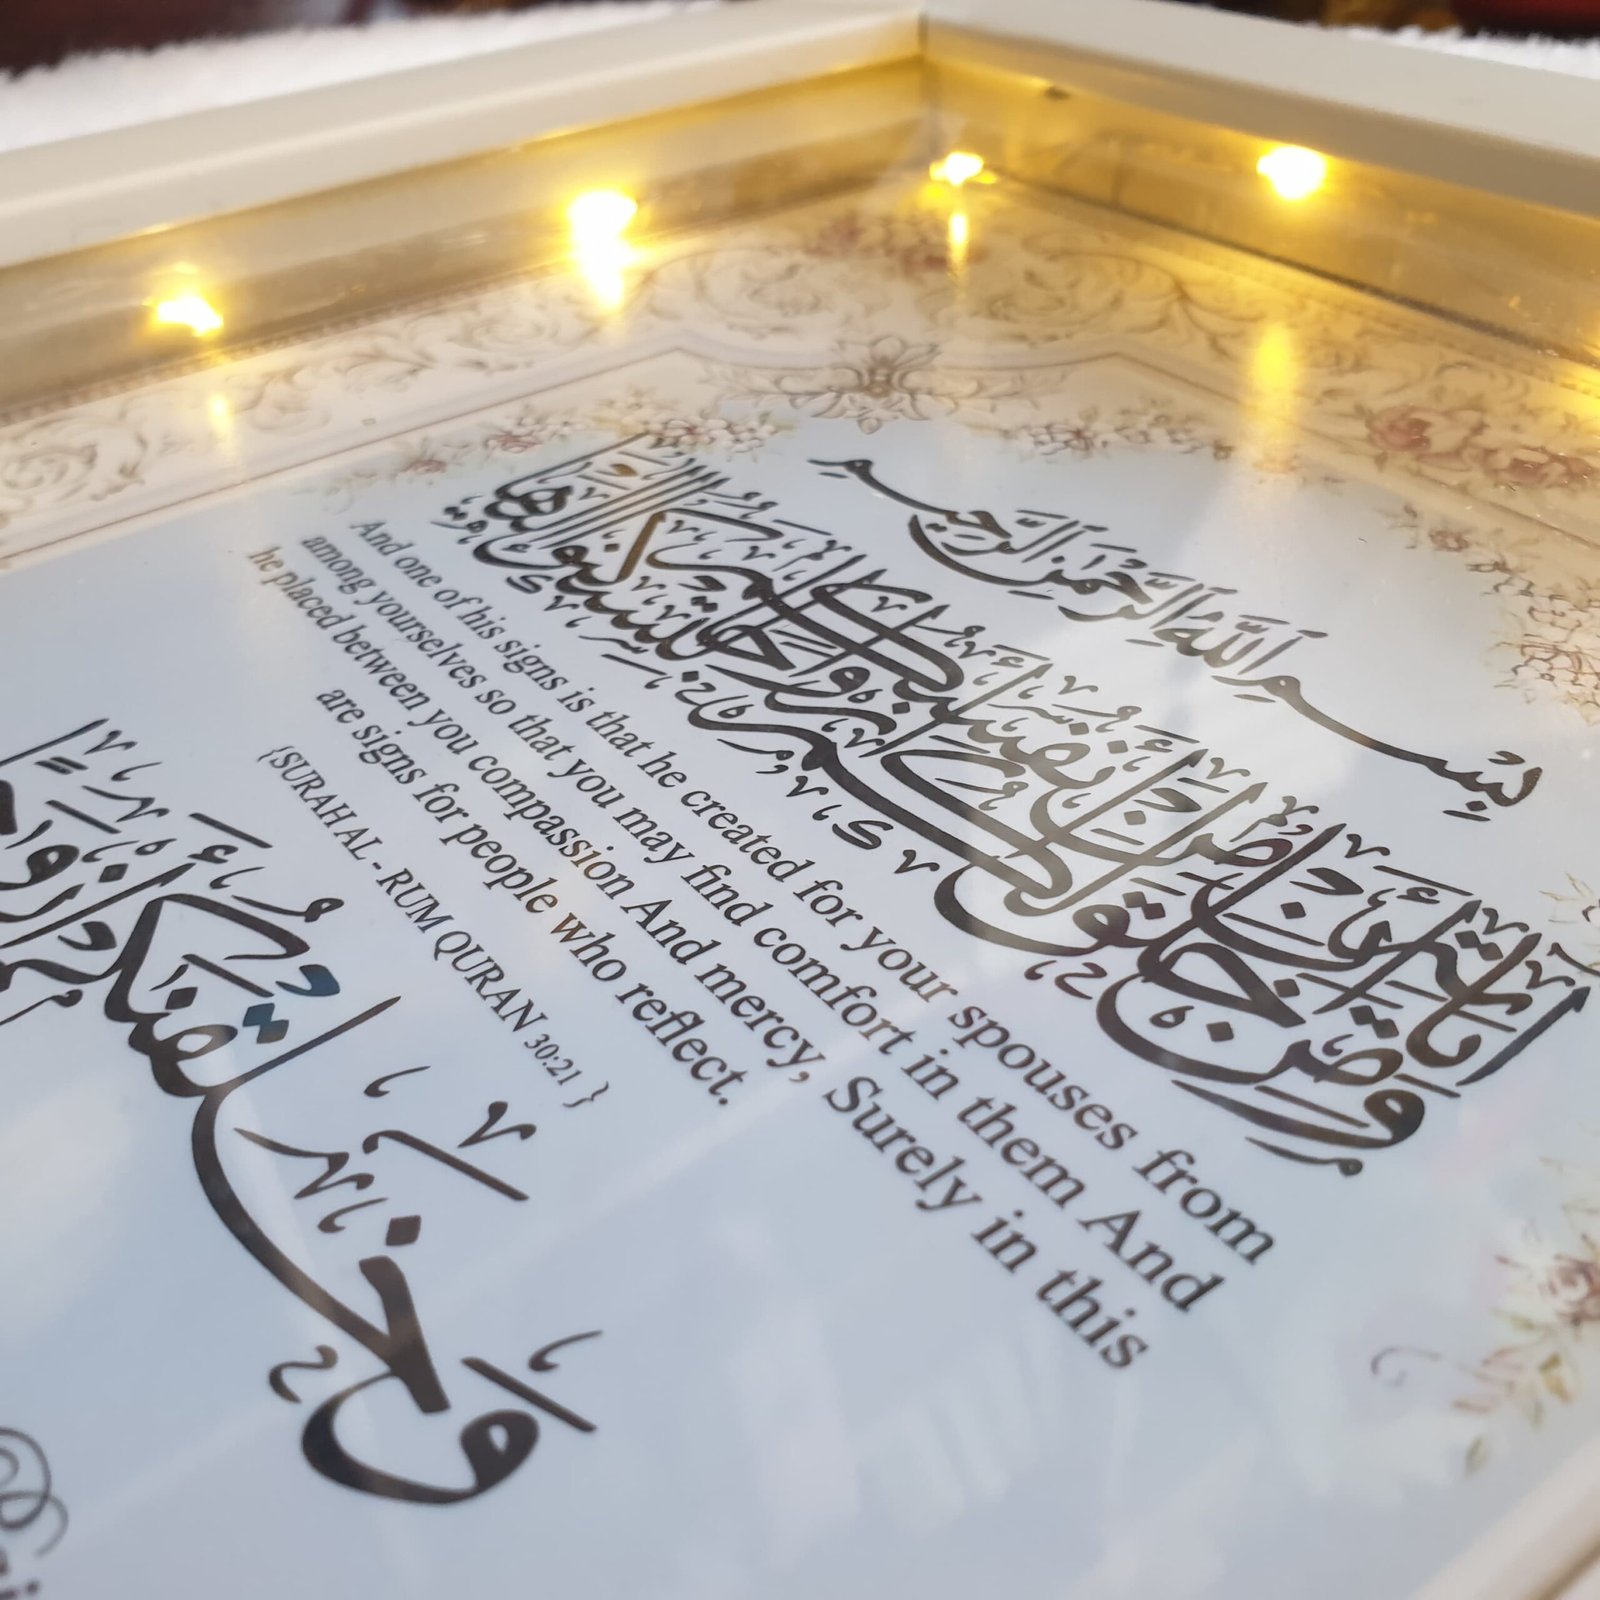 بِسْمِ اللَّهِ الرَّحْمَنِ الرَّحِيمِ
وَمِنْ آيَاتِهِ أَنْ خَلَقَ لَكُمْ مِنْ أَنْفُسِكُمْ أَزْوَاجًا لِتَسْكُنُوا إِلَيْهَا
And one of his signs is that he created for your spouses from
among yourselves so that you may find comfort in them And
he placed between you compassion And mercy, Surely in this
are signs for people who reflect.
{SURAH AL - RUM QURAN 30:21 }
وَخَلَقْنَاكُمْ